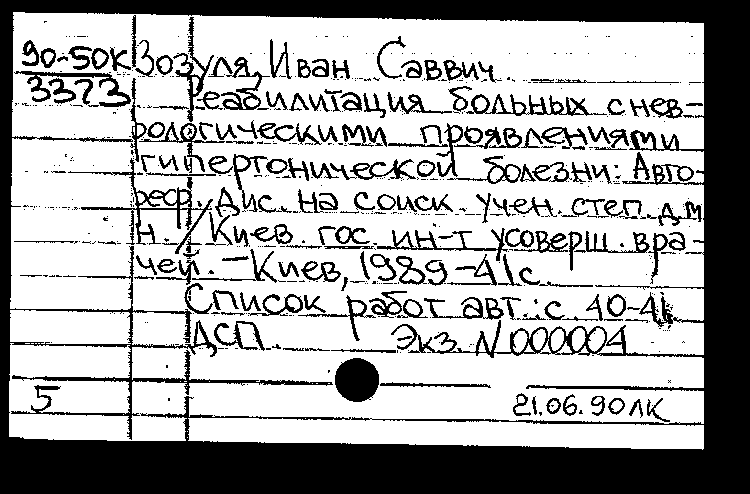 90-50К Зозуля, Иван Саввич
3373 Реабилитация больных с нев-
рологическими проявлениями
гипертонической болезни: Авто-
реф. Дис. на соиск. учен. степ. д.м.
н. / Киев. гос. ин-т усоверш. вра-
чей. — Киев, 1989 - 41 с.
Список работ авт.: с. 40-41
ДСП. Экз. N 000004
5 21.06.90 ЛК